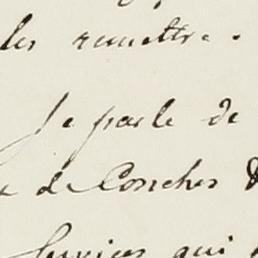 les remettre.
Je parle de
de Conches
services qui